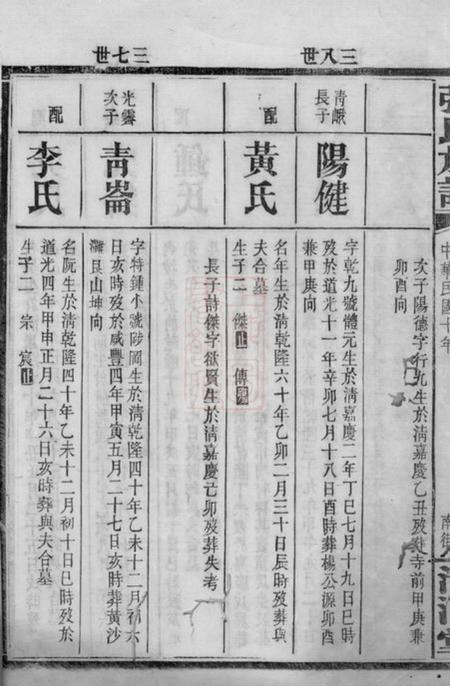 三八世
三七世
張氏族譜
中華民國十年
南街
清河堂
次子陽德字行九生於清嘉慶乙丑歿葬寺前甲庚兼
卯酉向
青巘長子
陽健
字乾九號體元生於清嘉慶二年丁巳七月十九日巳時
歿於道光十一年辛卯七月十八日酉時葬楊公源卯酉
兼甲庚向
配
黃氏
名年生於清乾隆六十年乙卯二月三十日辰時歿葬與
夫合墓
生子二 傑止 傳
長子詩傑字欲賢生於清嘉慶亡卯歿葬失考
光霽次子
青崙
字特鍾小號陟岡生於清乾隆四十年乙未十二月初六
日亥時歿於咸豐四年甲寅五月二十七日亥時葬黃沙
灘艮山坤向
配
李氏
名阮生於清乾隆四十年乙未十二月初十日巳時歿於
道光四年甲申正月二十六日亥時葬與夫合墓
生子二 宗 宸止